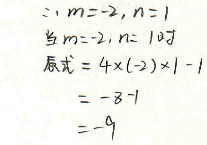 ∴ m=-2, n=1
当m=-2, n=1时
原式=4×(-2)×1-1
=-8-1
=-9